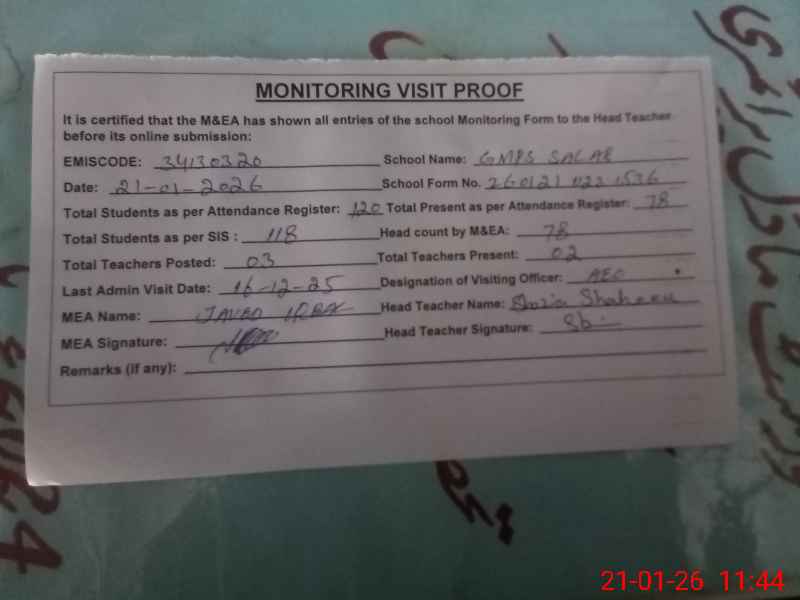 MONITORING VISIT PROOF
It is certified that the M&EA has shown all entries of the school Monitoring Form to the Head Teacher
before its online submission:
EMISCODE: 34130320 School Name: GMPS SALAR
Date: 21-01-2026 School Form No. 260121 022 1536
Total Students as per Attendance Register: 120 Total Present as per Attendance Register: 78
Total Students as per SIS : 118 Head count by M&EA: 78
Total Teachers Posted: 03 Total Teachers Present: 02
Last Admin Visit Date: 16-12-25 Designation of Visiting Officer: AEO
MEA Name: JAVED IQBAL Head Teacher Name: Shazia Shaheen
MEA Signature: Head Teacher Signature:
Remarks (if any):
21-01-26 11:44